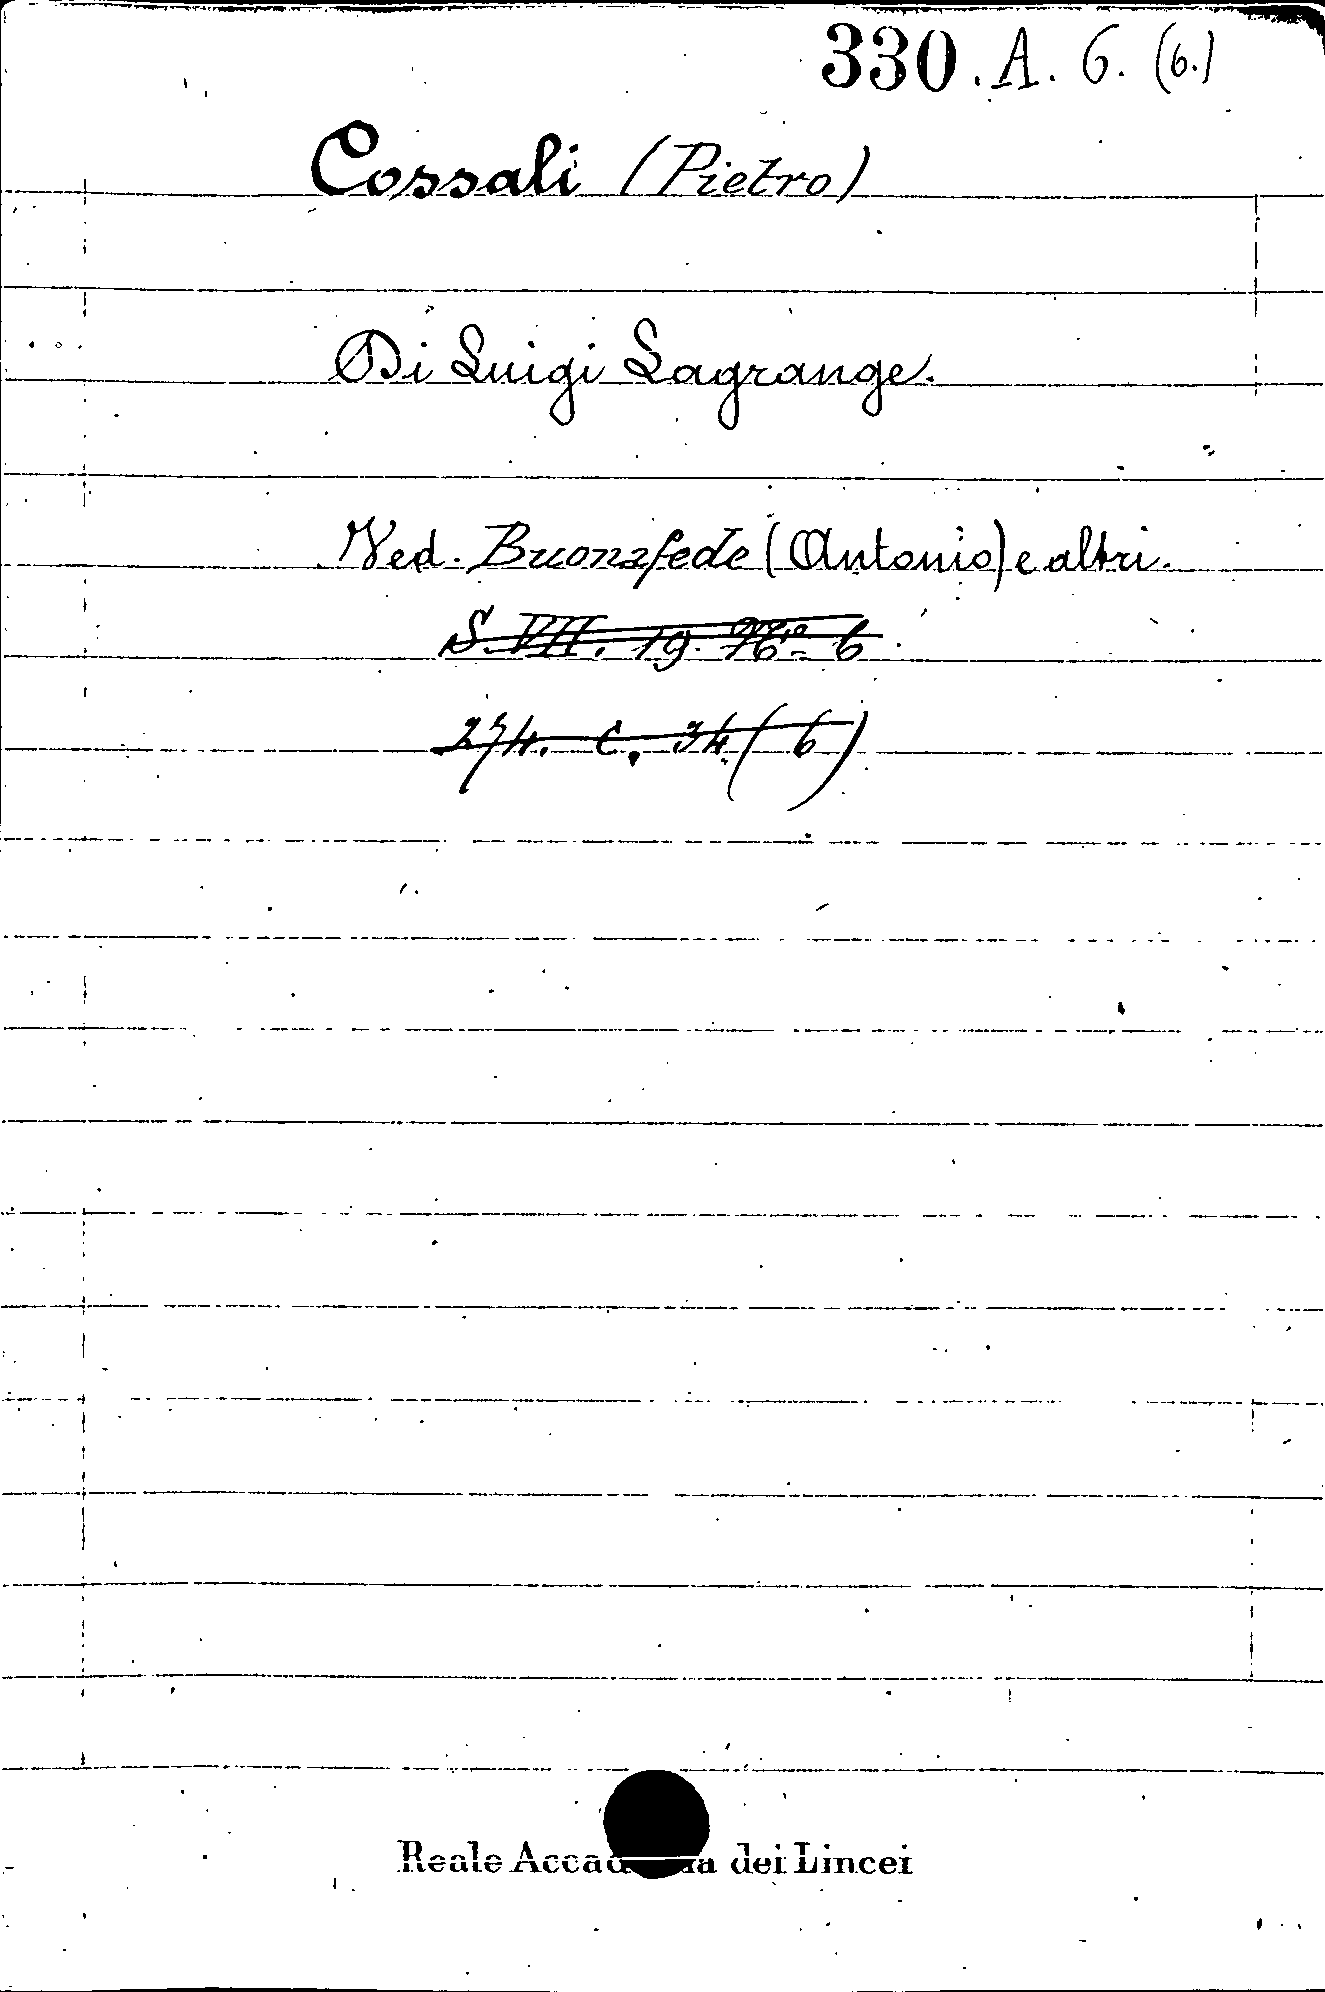 330. A. 6. (6.)
Cossali (Pietro)
Di Luigi Lagrange.
Ved. Buonafede (Antonio) e altri.
S. VII. 19. N.º 6
274. C. 34 (6)
Reale Accademia dei Lincei